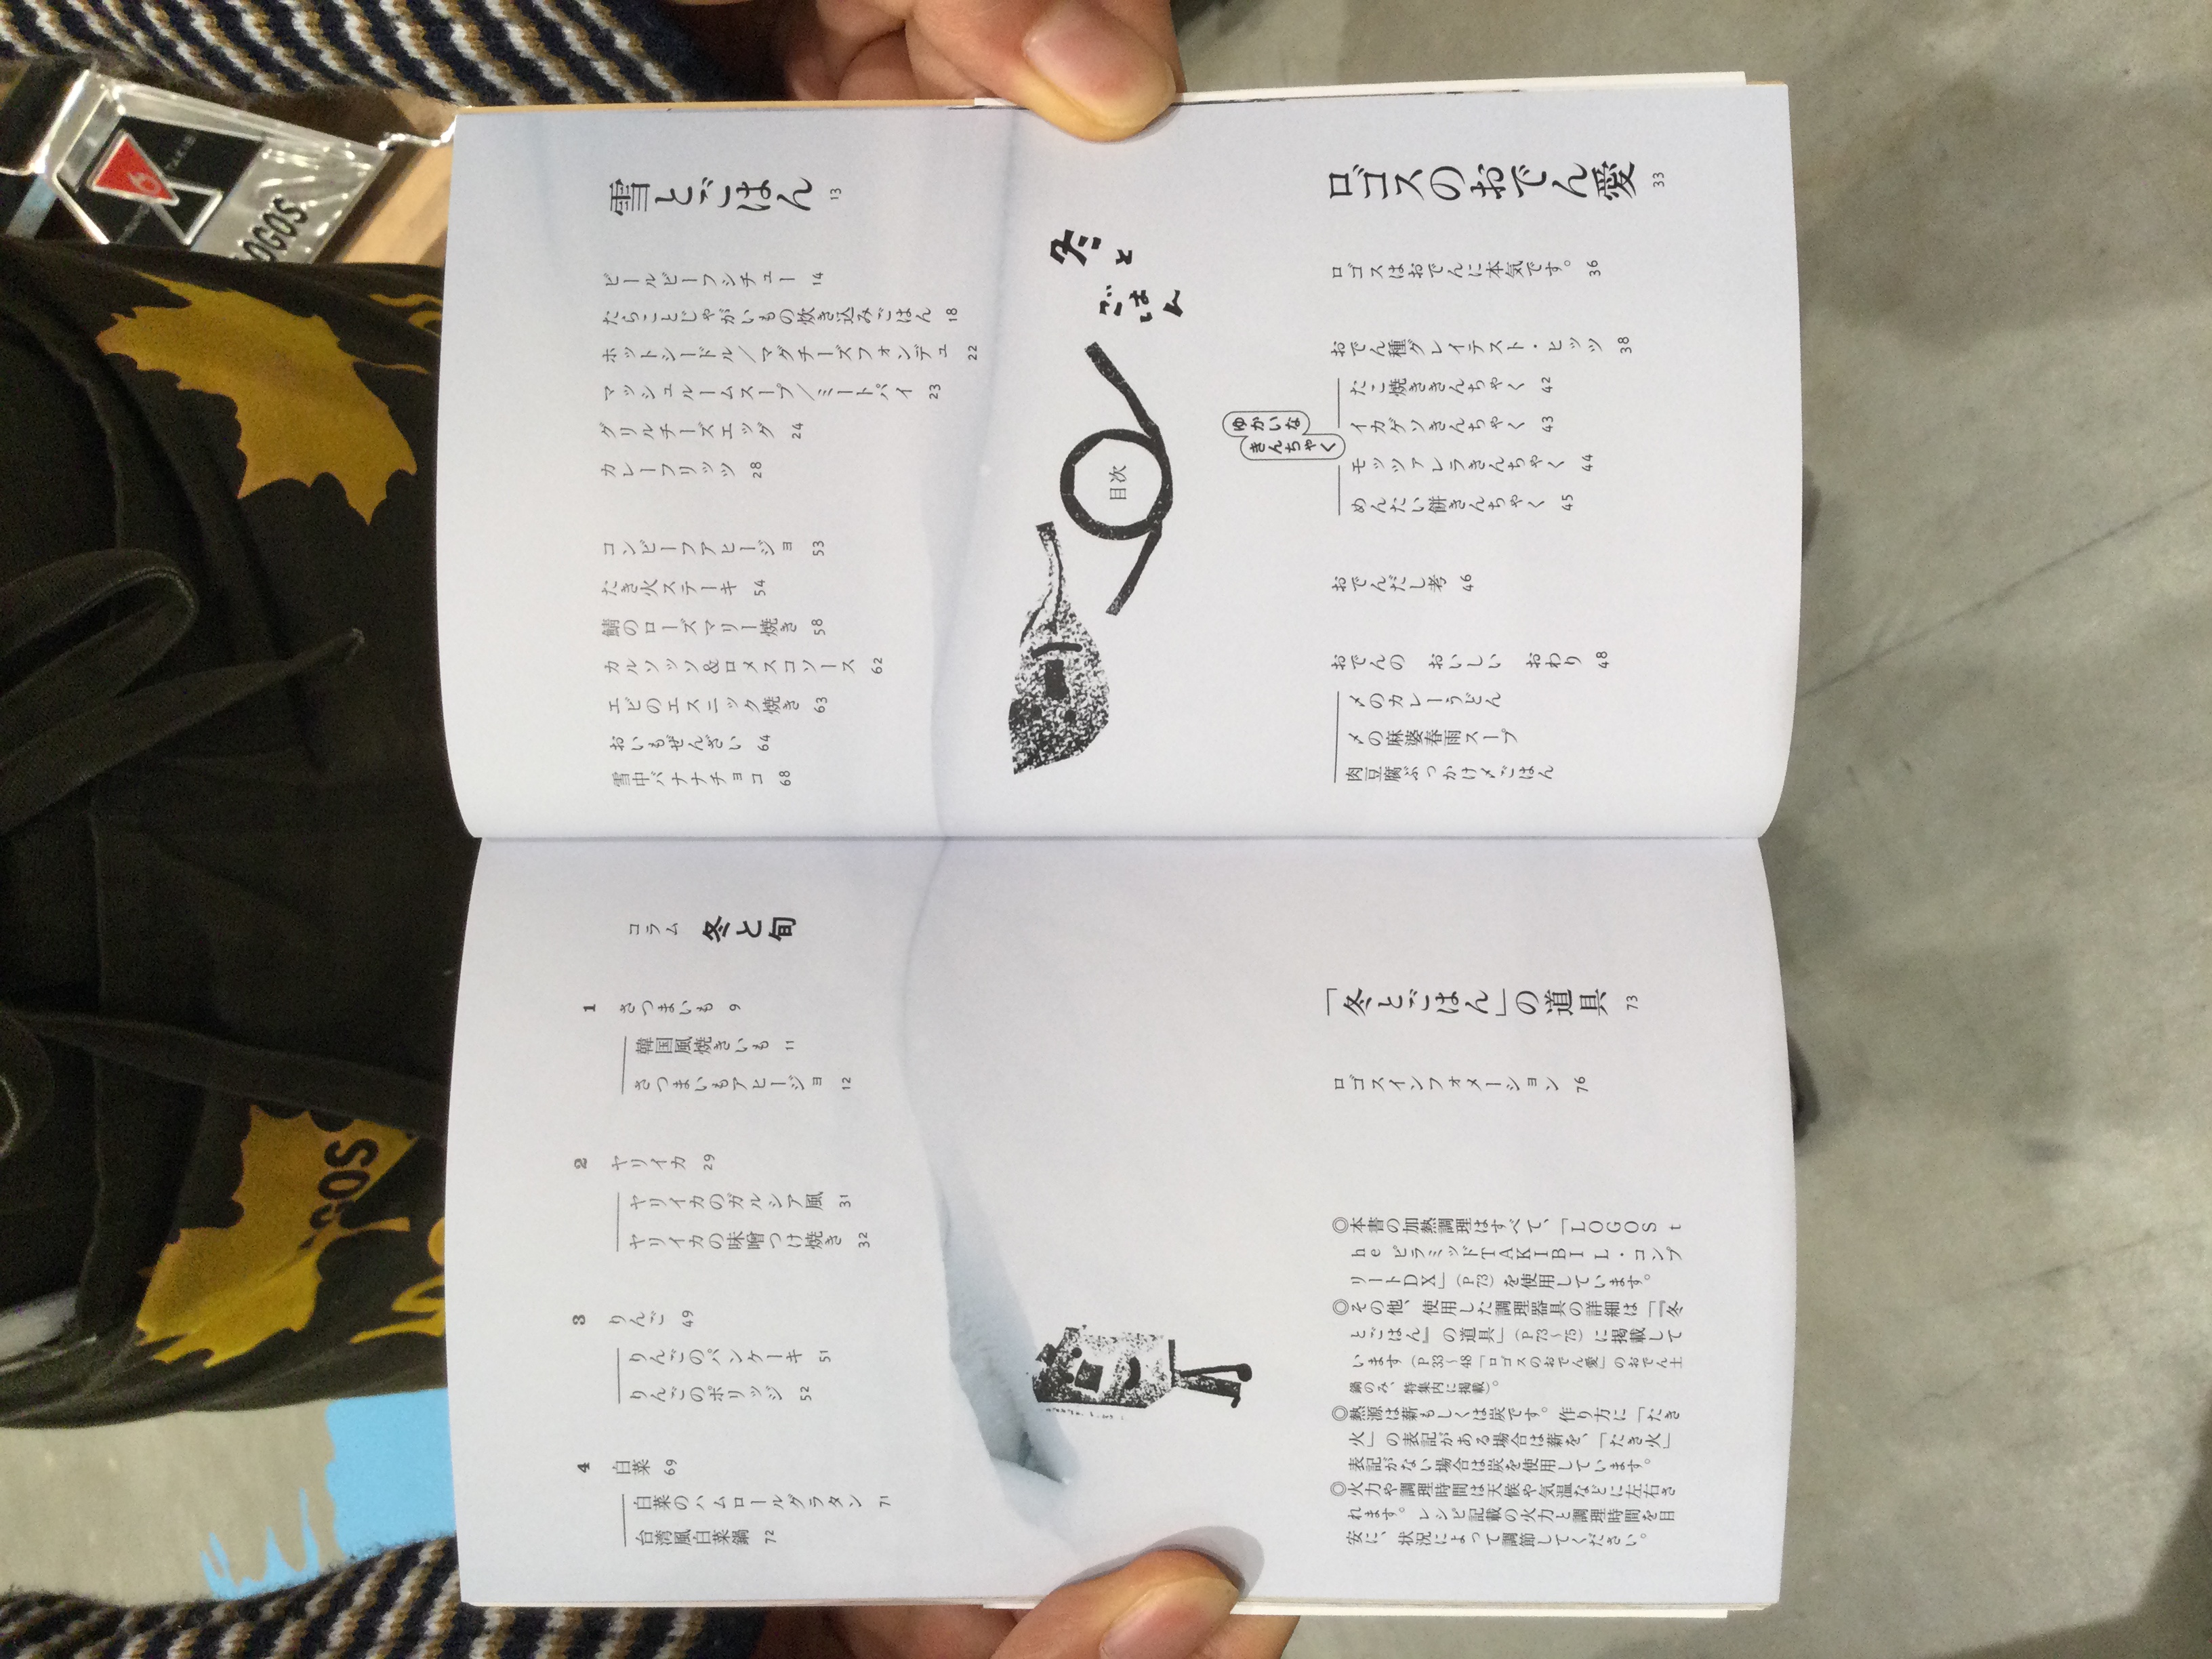 冬と
ごはん
目次
雪とごはん 13
ビールビーフシチュー 14
たらことじゃがいもの炊き込みごはん 18
ホットシードル／マグチーズフォンデュ 22
マッシュルームスープ／ミートパイ 23
グリルチーズエッグ 24
カレーフリッツ 28
コンビーフアヒージョ 53
たき火ステーキ 54
鯖のローズマリー焼き 58
カルソッツ＆ロメスコソース 62
エビのエスニック焼き 63
おいもぜんざい 64
雪中バナナチョコ 68
ロゴスのおでん愛 33
ロゴスはおでんに本気です。 36
おでん種グレイテスト・ヒッツ 38
ゆかいな
きんちゃく
たこ焼ききんちゃく 42
イカゲソきんちゃく 43
モッツァレラきんちゃく 44
めんたい餅きんちゃく 45
おでんだし考 46
おでんの おいしい おわり 48
〆のカレーうどん
〆の麻婆春雨スープ
肉豆腐ぶっかけ〆ごはん
コラム 冬と旬
1 さつまいも 9
韓国風焼きいも 11
さつまいもアヒージョ 12
2 ヤリイカ 29
ヤリイカのガルシア風 31
ヤリイカの味噌つけ焼き 32
3 りんご 49
りんごのパンケーキ 51
りんごのポリッジ 52
4 白菜 69
白菜のハムロールグラタン 71
台湾風白菜鍋 72
「冬とごはん」の道具 73
ロゴスインフォメーション 76
◎本書の加熱調理はすべて、「LOGOS t
he ピラミッドTAKIBI L・コンプ
リートDX」（P73）を使用しています。
◎その他、使用した調理器具の詳細は「『冬
とごはん』の道具」（P73〜75）に掲載して
います（P33〜48「ロゴスのおでん愛」のおでん土
鍋のみ、特集内に掲載）。
◎熱源は薪もしくは炭です。作り方に「たき
火」の表記がある場合は薪を、「たき火」
表記がない場合は炭を使用しています。
◎火力や調理時間は天候や気温などに左右さ
れます。レシピ記載の火力と調理時間を目
安に、状況によって調節してください。
LOGOS